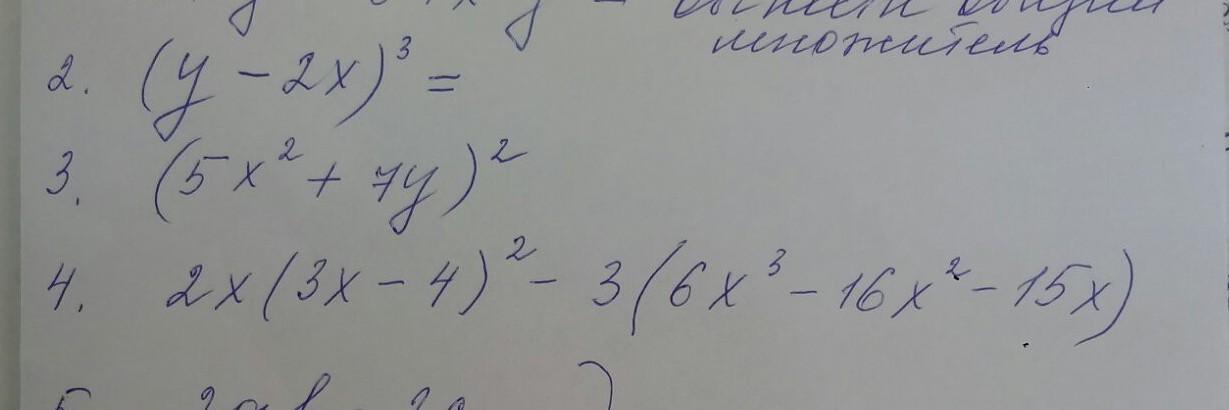 множитель
2. (y - 2x)³ =
3. (5x² + 7y)²
4. 2x(3x - 4)² - 3(6x³ - 16x² - 15x)